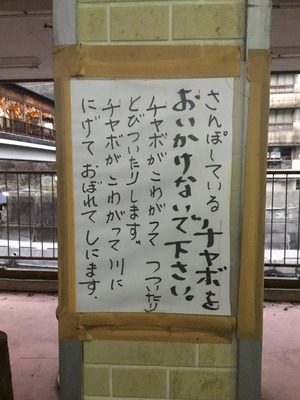 さんぽしている"チャボを
おいかけないで下さい。
チャボがこわがって つついたり
とびついたりします。
チャボがこわがって川に
にげて おぼれて しにます.